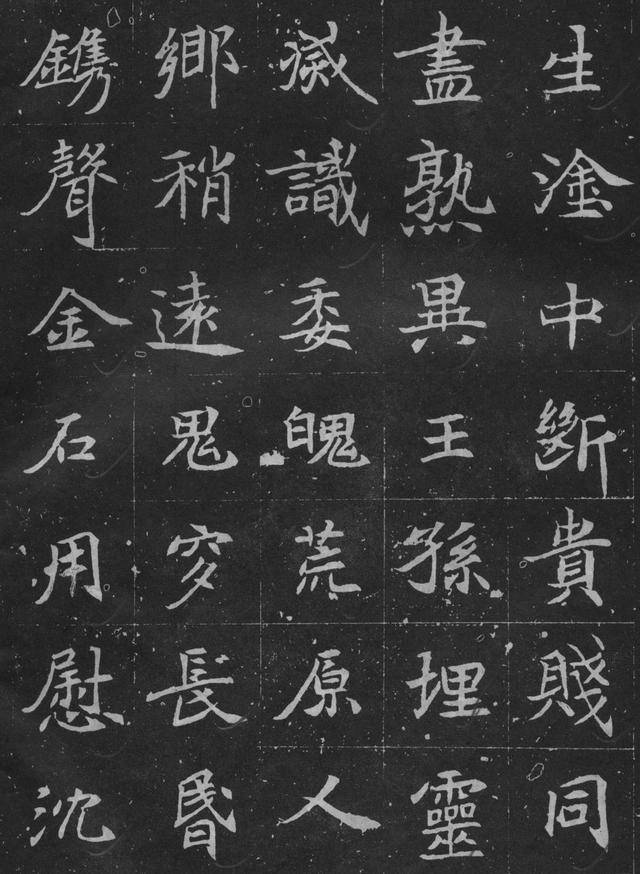 生塗中斷貴賤同
盡熟異王孫埋靈
滅識委魄荒原人
鄉稍遠鬼穸長昬
鐫聲金石用慰沈